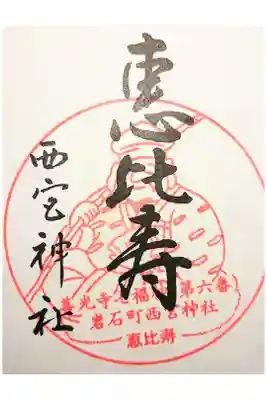 恵比寿
西宮神社
善光寺七福神 第六番
岩石町西宮神社
恵比寿